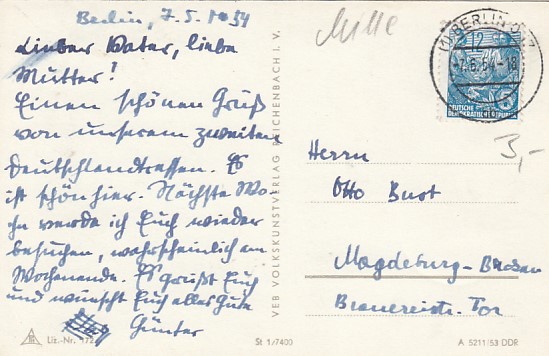 Berlin, 7.5.1954
Mitte
Lieber Vater, liebe
Mutter!
Einen schönen Gruß
von unserem zweiten
Deutschlandtreffen. Es
ist schön hier. Nächste Wo
che werde ich Euch wieder
besuchen, wahrscheinlich am
Wochenende. Es grüßt Euch
und wünscht Euch alles Gute
Günter
VEB VOLKSKUNSTVERLAG REICHENBACH I. V.
BERLIN
-7.6.54-18
12
DEUTSCHE
DEMOKRATISCHE REPUBLIK
3,-
Herrn
Otto Bust
Magdeburg-
Brauereistr.
Liz.-Nr.
St 1/7400
A 5211/53 DDR